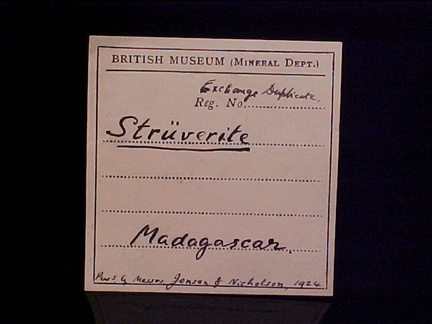 BRITISH MUSEUM (MINERAL DEPT.)
Exchange Duplicate.
Reg. No.
Strüverite
Madagascar.
Pres. by Messrs Jensen & Nicholson, 1924.